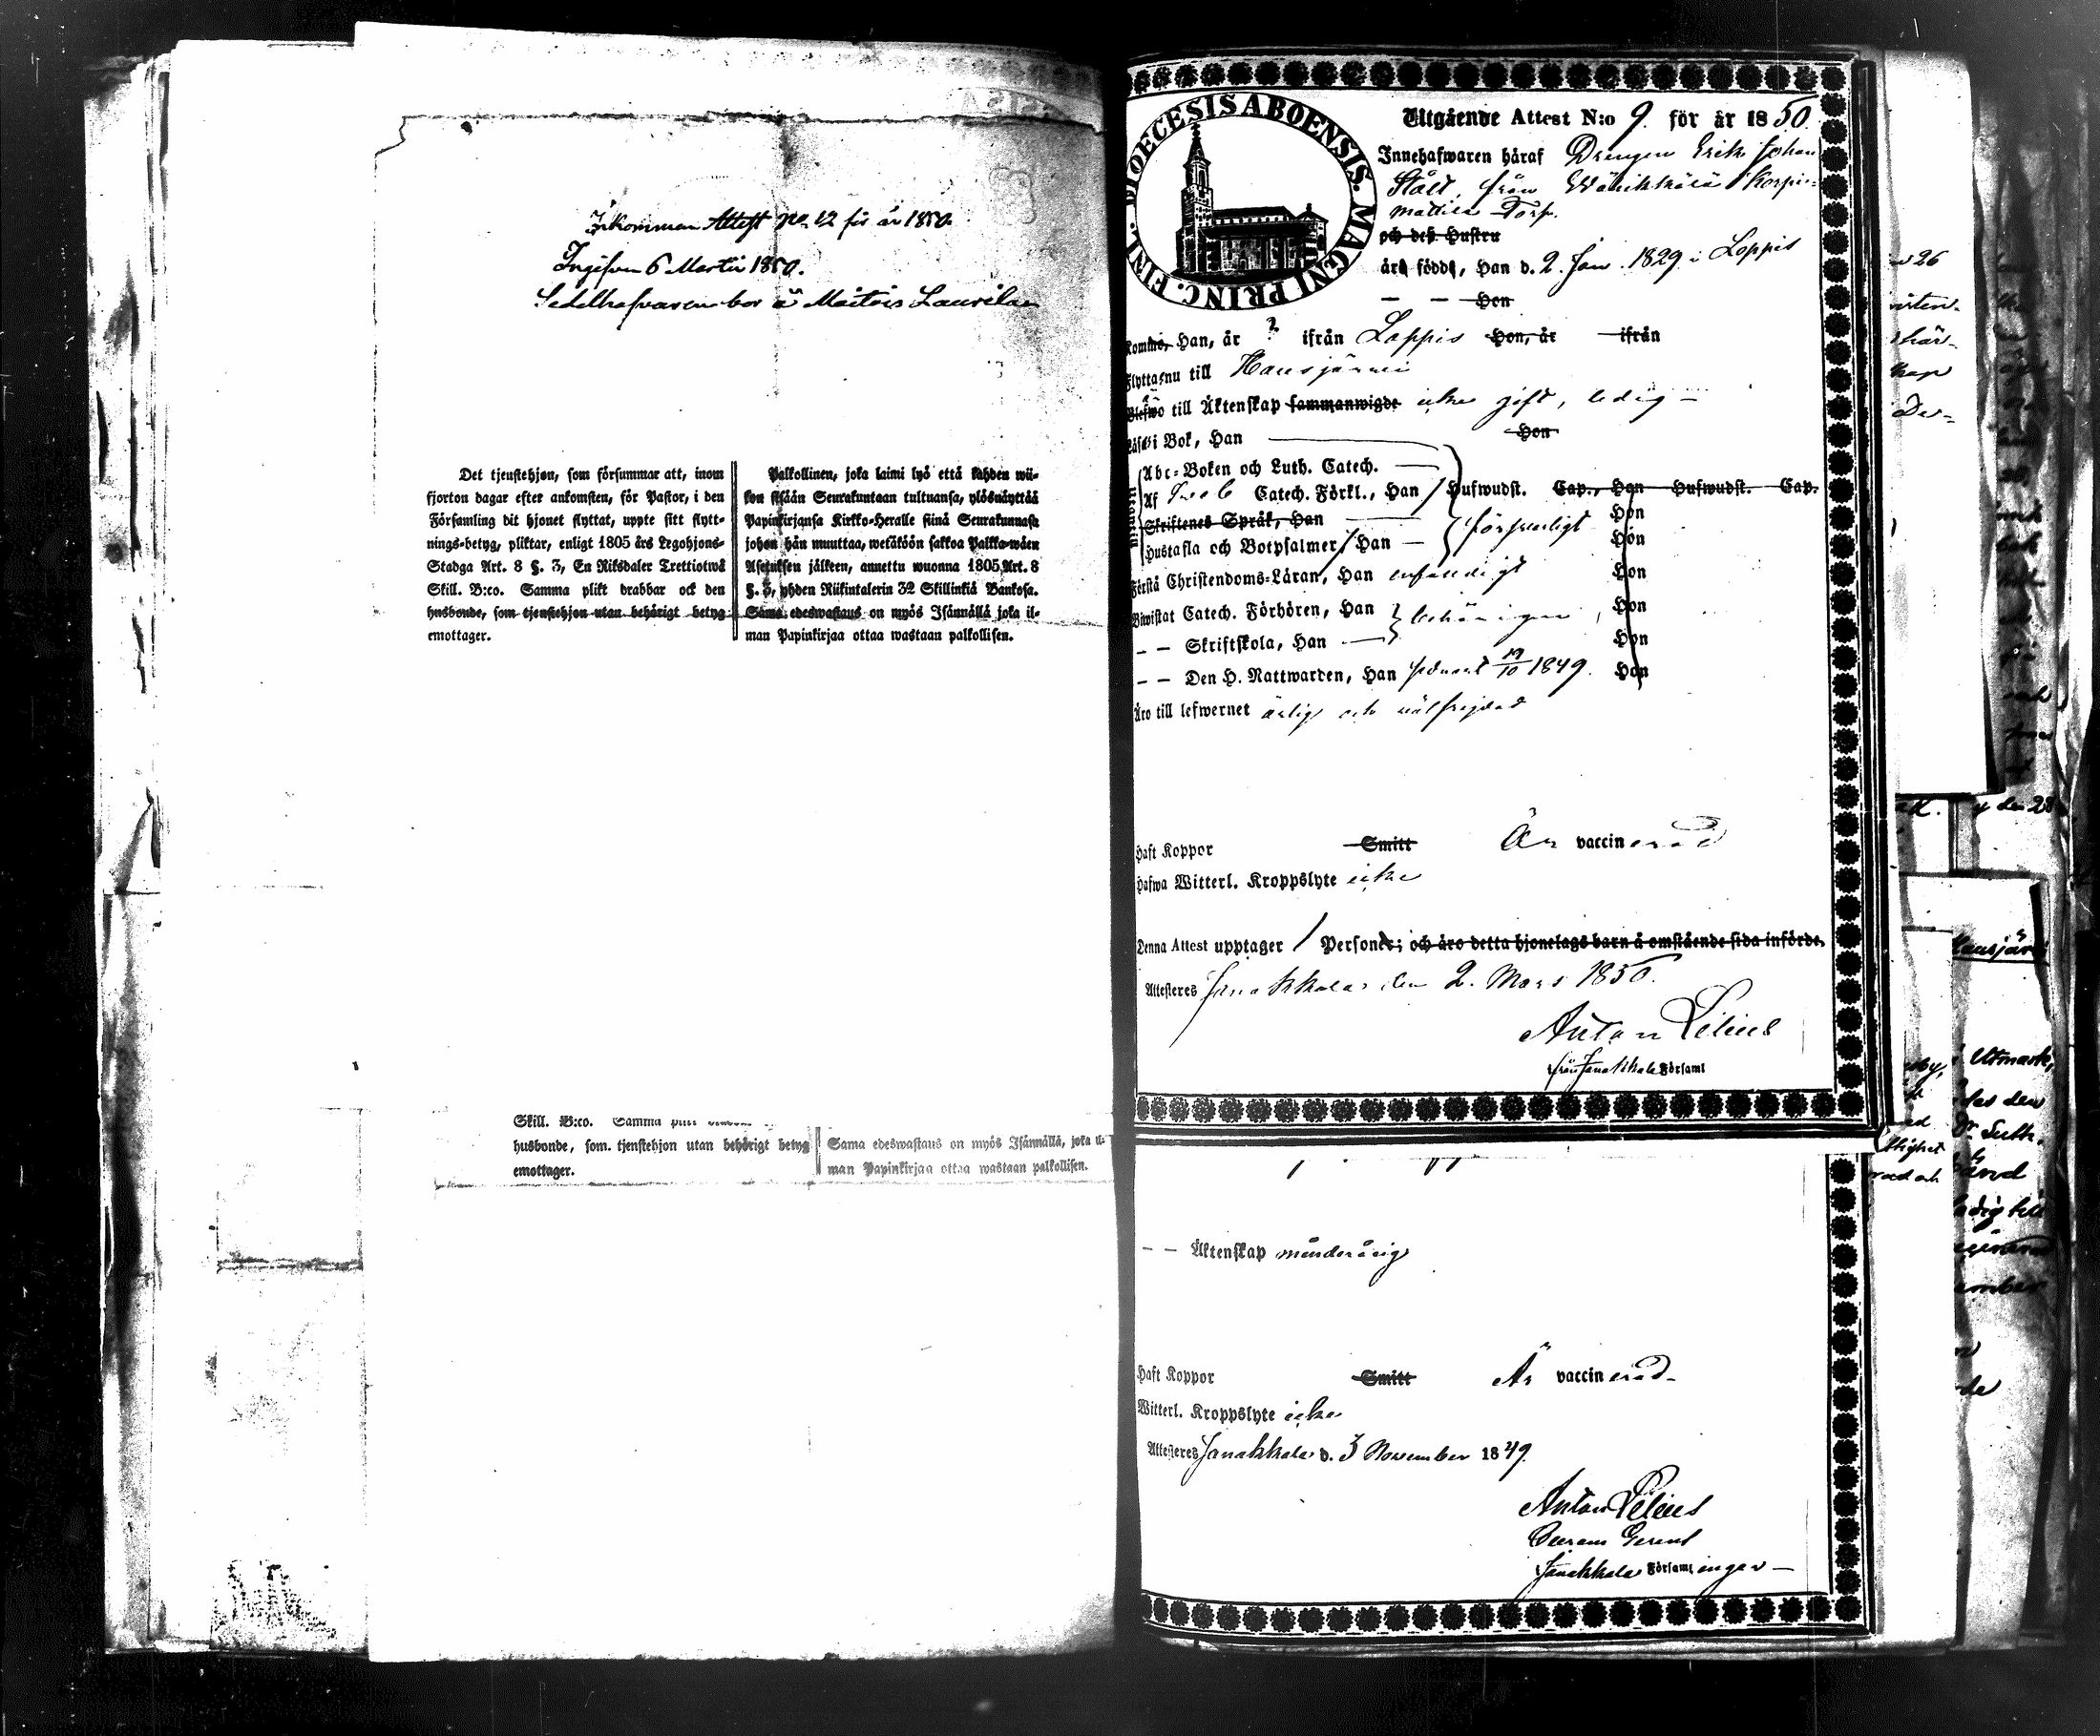 Inkommen Attest No 12 för år 1850.
Ingifven 6 Martii 1850.
Sedelhafvaren bor å Maitois Laurila
Det tjenstehjon, som försummar att, inom
fjorton dagar efter ankomsten, för Pastor, i den
Församling dit hjonet flyttat, uppte sitt flytt-
nings-betyg, pliktar, enligt 1805 års Legohjons-
Stadga Art. 8 §. 3, En Riksdaler Trettiotwå
Skill. B:co. Samma plikt drabbar ock den
husbonde, som tjenstehjon utan behörigt betyg
emottager.
Palkollinen, joka laimi lyö että kahden wii-
kon sisään Seurakuntaan tultuansa, ylösnäyttää
Papinkirjansa Kirkko-Heralle siinä Seurakunnassa
johon hän muuttaa, wetäköön sakkoa Palkka-wäen
Asetuksen jälkeen, annettu wuonna 1805 Art. 8
§. 3, yhden Riikintalerin 32 Skillinkiä Bankosa.
Sama edeswastaus on myös Isännällä joka il-
man Papinkirjaa ottaa wastaan palkollisen.
Skill. B:co. Samma plikt
husbonde, som tjenstehjon utan behörigt betyg
emottager.
Sama edeswastaus on myös Isännällä, joka il-
man Papinkirjaa ottaa wastaan palkollisen.
DIOECESIS ABOENSIS. MAGNI PRINC. FINL.
Utgående Attest N:o 9. för år 1850.
Innehafwaren häraf Drengen Erik Johan
Ståld, från Wänikkälä Korpi-
mattila Torp.
och dess Hustru
äro födde, Han d. 2. Jan. 1829 i Loppis
— — Hon
Komne, Han, år ? ifrån Loppis Hon, år ifrån
Flytta nu till Hausjärvi
till Äktenskap sammanwigde icke gift, ledig —
Läsa i Bok, Han Hon
Abc-Boken och Luth. Catech.
Af Catech. Förkl., Han Hufwudst. Cap., Han Hufwudst. Cap.
Skriftenes Språk, Han Hon
Hustafla och Botpsalmer, Han försvarligt Hon
Förstå Christendoms-Läran, Han Hon
Biwistat Catech. Förhören, Han Hon
— — Skriftskola, Han Hon
— — Den H. Nattwarden, Han senast 19/10 1849. Han
Äro till lefwernet ärlig och wälfrejdad
Haft Koppor Smitt Är vaccinerad
Hafwa Witterl. Kroppslyte icke
Denna Attest upptager 1 Personer; och äro detta hjonelags barn å omstående sida införde.
Attesteres Janakkala den 2. Mars 1850.
Anton Lilius
från Janakkala Församl
— — Äktenskap minderårig
Haft Koppor Smitt Är vaccinerad.
Witterl. Kroppslyte icke
Attesteres Janakkala d. 3 November 1849.
Anton Lilius
Janakkala Församlingar —